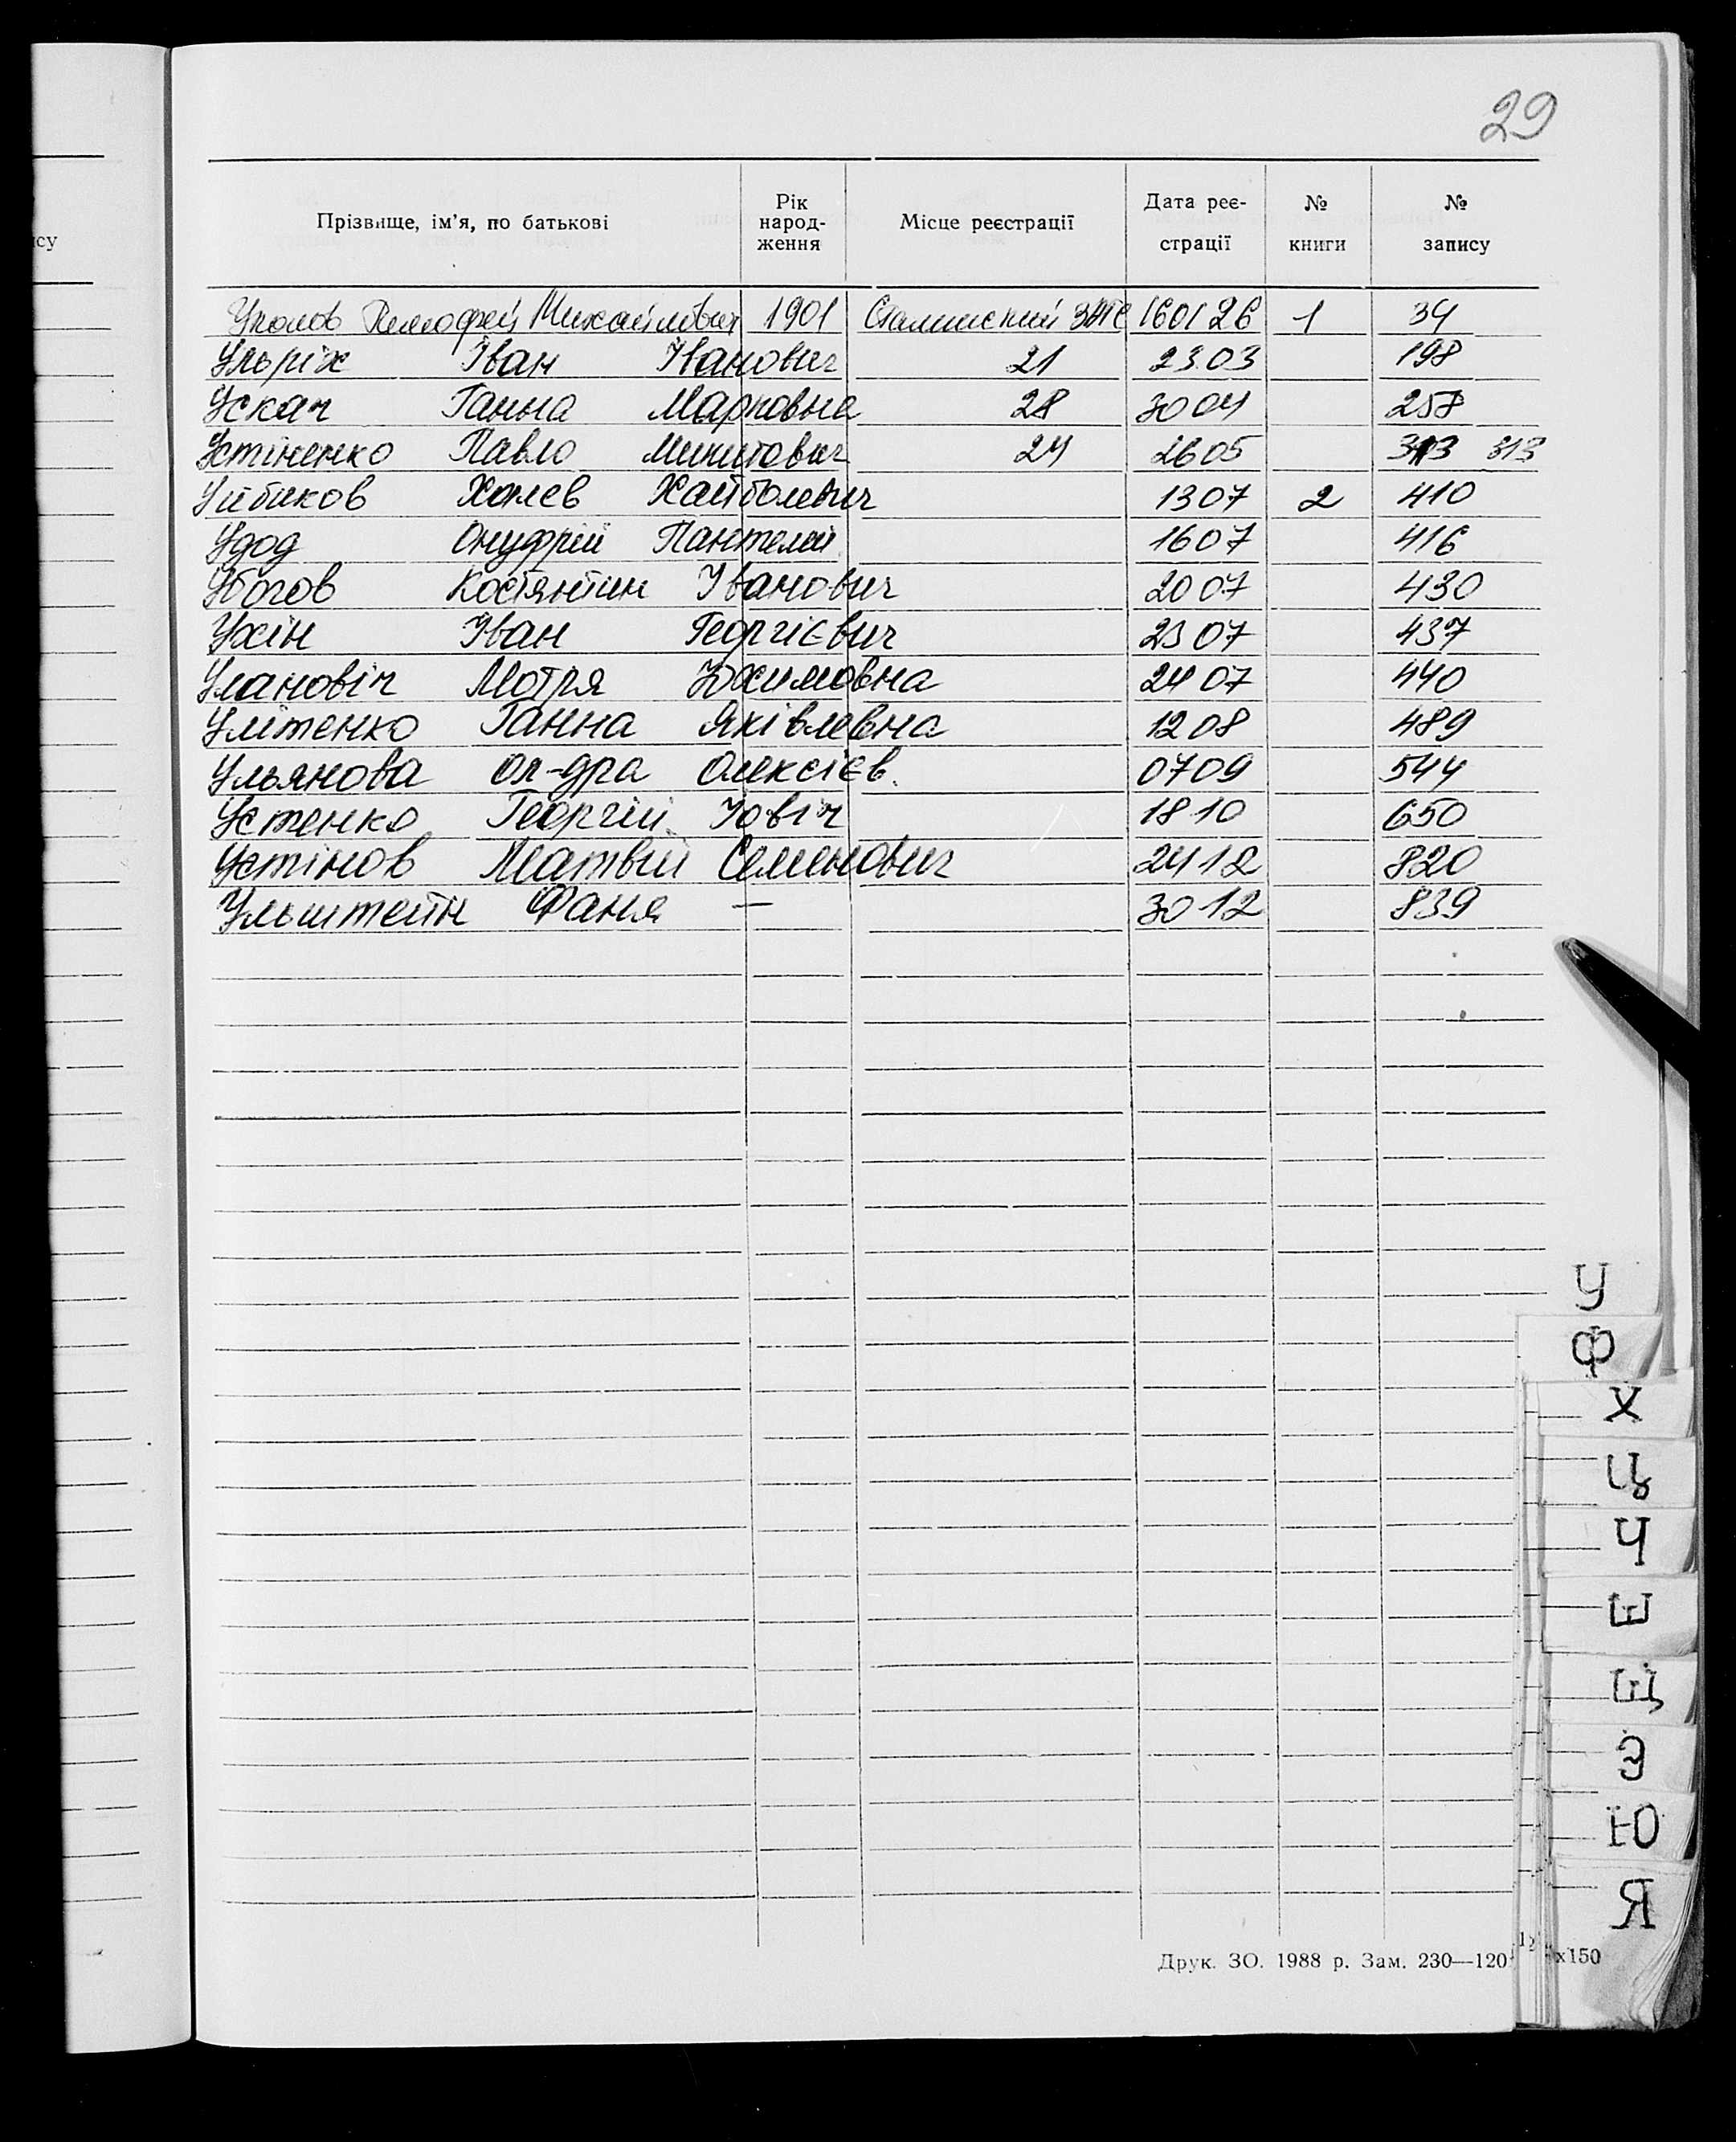 29
ису
Прізвище, ім'я, по батькові Рік народ- ження Місце реєстрації Дата реє- страції № книги № запису
Уколов Тимофей Михайлович 1901 Сталинский ЗАГС 160126 1 34
Ульріх Іван Іванович 21 2303 198
Ускач Ганна Марковна 28 3004 258
Устіненко Павло Микитович 24 2605 313 313
Уйбиков Халев 1307 2 410
Удод Онуфрій Пантелей 1607 416
Убогов Костянтин Іванович 2007 430
Ухін Іван Георгієвич 2307 437
Улановіч Мотря Юхимовна 2407 440
Улітенко Ганна Яківлевна 1208 489
Ульянова Ол-дра Олексієв. 0709 544
Устенко Георгій Іовіч 1810 650
Устінов Матвій Семенович 2412 820
Ульштейн Фаня — 3012 839
У
Ф
Х
Ц
Ч
Ш
Щ
Э
Ю
Я
Друк. ЗО. 1988 р. Зам. 230—120 х150